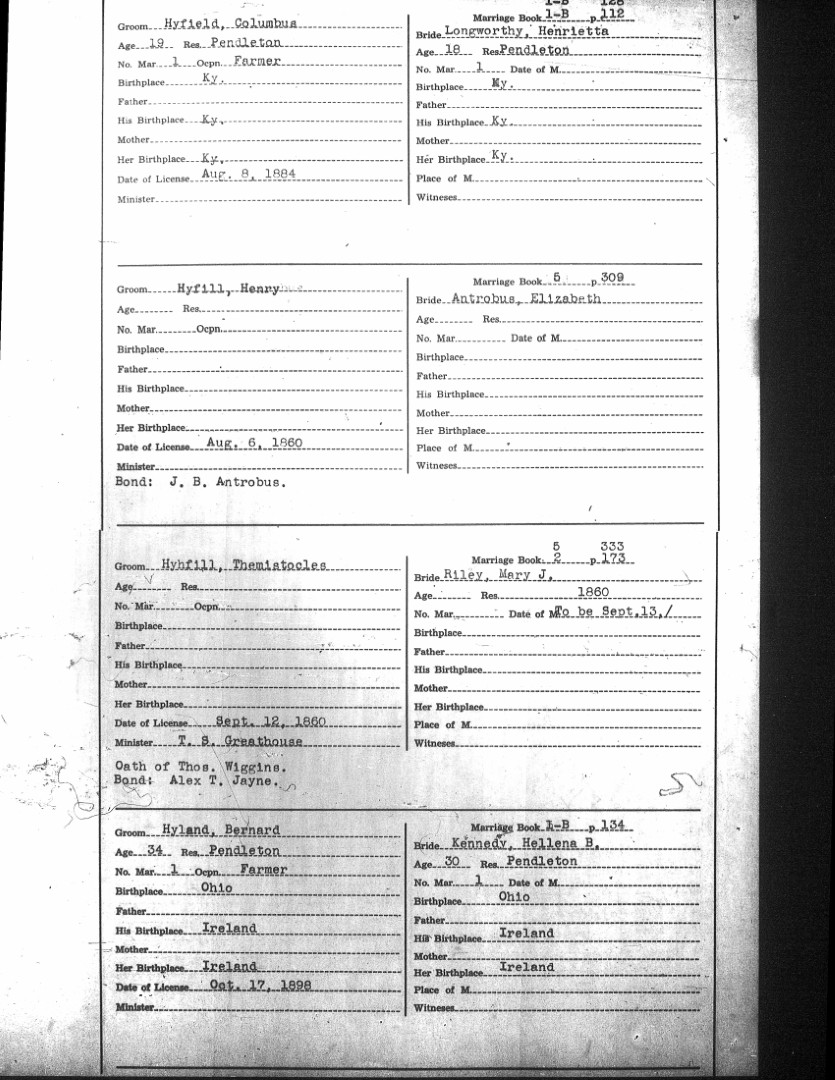 1-B 128
Groom Hyfield, Columbus
Age 19 Res. Pendleton
No. Mar. 1 Ocpn. Farmer
Birthplace Ky.
Father
His Birthplace Ky.
Mother
Her Birthplace Ky.
Date of License Aug. 8, 1884
Minister
Marriage Book 1-B p. 112
Bride Longworthy, Henrietta
Age 18 Res Pendleton
No. Mar. 1 Date of M.
Birthplace Ky.
Father
His Birthplace Ky.
Mother
Her Birthplace Ky.
Place of M.
Witnesses
Groom Hyfill, Henry
Age Res.
No. Mar. Ocpn.
Birthplace
Father
His Birthplace
Mother
Her Birthplace
Date of License Aug. 6, 1860
Minister
Bond: J. B. Antrobus.
Marriage Book 5 p. 309
Bride Antrobus, Elizabeth
Age Res.
No. Mar. Date of M.
Birthplace
Father
His Birthplace
Mother
Her Birthplace
Place of M.
Witnesses
Groom Hyhfill, Themistocles
Age Res.
No. Mar. Ocpn.
Birthplace
Father
His Birthplace
Mother
Her Birthplace
Date of License Sept. 12, 1860
Minister T. S. Greathouse
Oath of Thos. Wiggins.
Bond: Alex T. Jayne.
5 333
Marriage Book 2 p. 173
Bride Riley, Mary J.
Age Res. 1860
No. Mar. Date of M. To be Sept.13,/
Birthplace
Father
His Birthplace
Mother
Her Birthplace
Place of M.
Witnesses
Groom Hyland, Bernard
Age 34 Res. Pendleton
No. Mar. 1 Ocpn. Farmer
Birthplace Ohio
Father
His Birthplace Ireland
Mother
Her Birthplace Ireland
Date of License Oct. 17, 1898
Minister
Marriage Book 1-B p. 134
Bride Kennedy, Hellena B.
Age 30 Res. Pendleton
No. Mar. 1 Date of M.
Birthplace Ohio
Father
His Birthplace Ireland
Mother
Her Birthplace Ireland
Place of M.
Witnesses